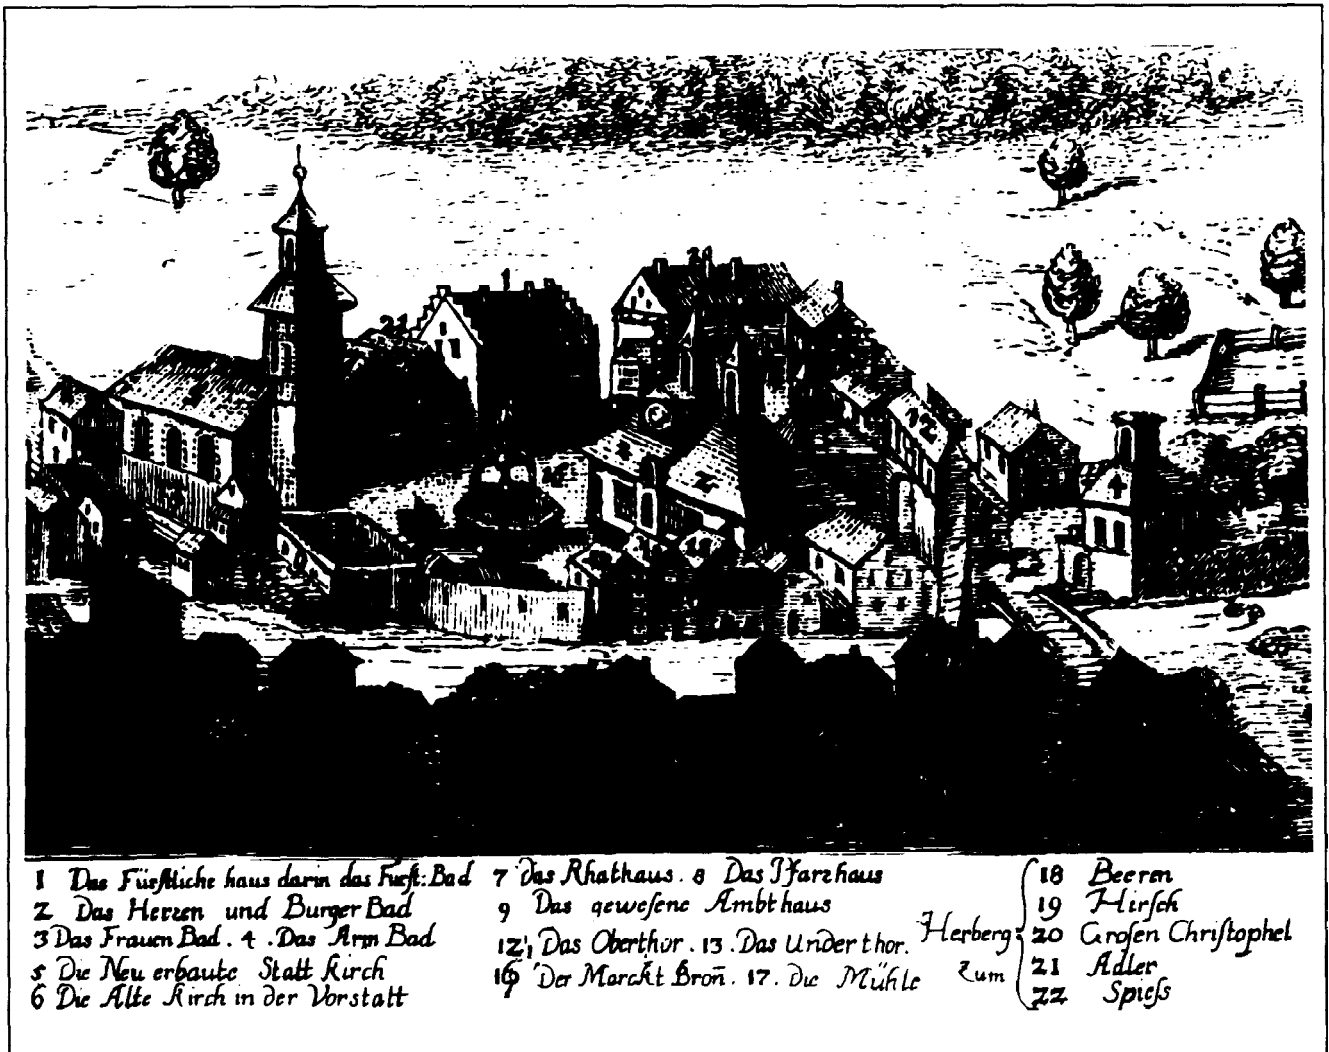 21
1
21
12
1 Das Fürstliche haus darin das Fürst: Bad
2 Das Herren und Burger Bad
3 Das Frauen Bad. 4. Das Arm Bad
5 Die Neu erbaute Statt Kirch
6 Die Alte Kirch in der Vorstatt
7 Das Rhathaus. 8 Das Pfarzhaus
9 Das gewesene Ambthaus
12 Das Oberthor. 13. Das Underthor.
16 Der Marckt Broñ. 17. die Mühle
Herberg zum
18 Beeren
19 Hirsch
20 Grosen Christophel
21 Adler
22 Spiess